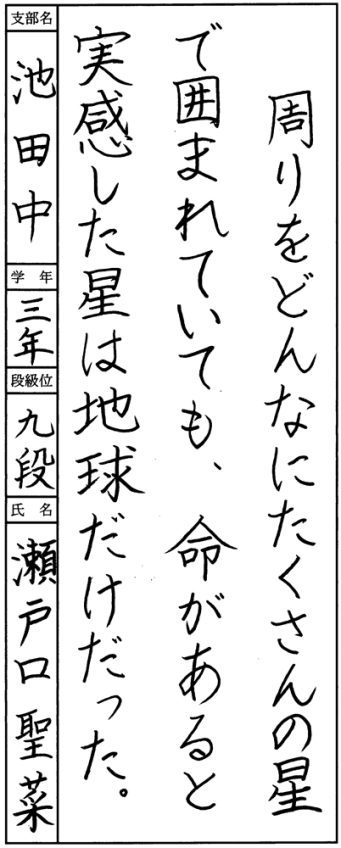 周りをどんなにたくさんの星
で囲まれていても、命があると
実感した星は地球だけだった。
支部名
池田中
学年
三年
段級位
九段
氏名
瀬戸口聖菜